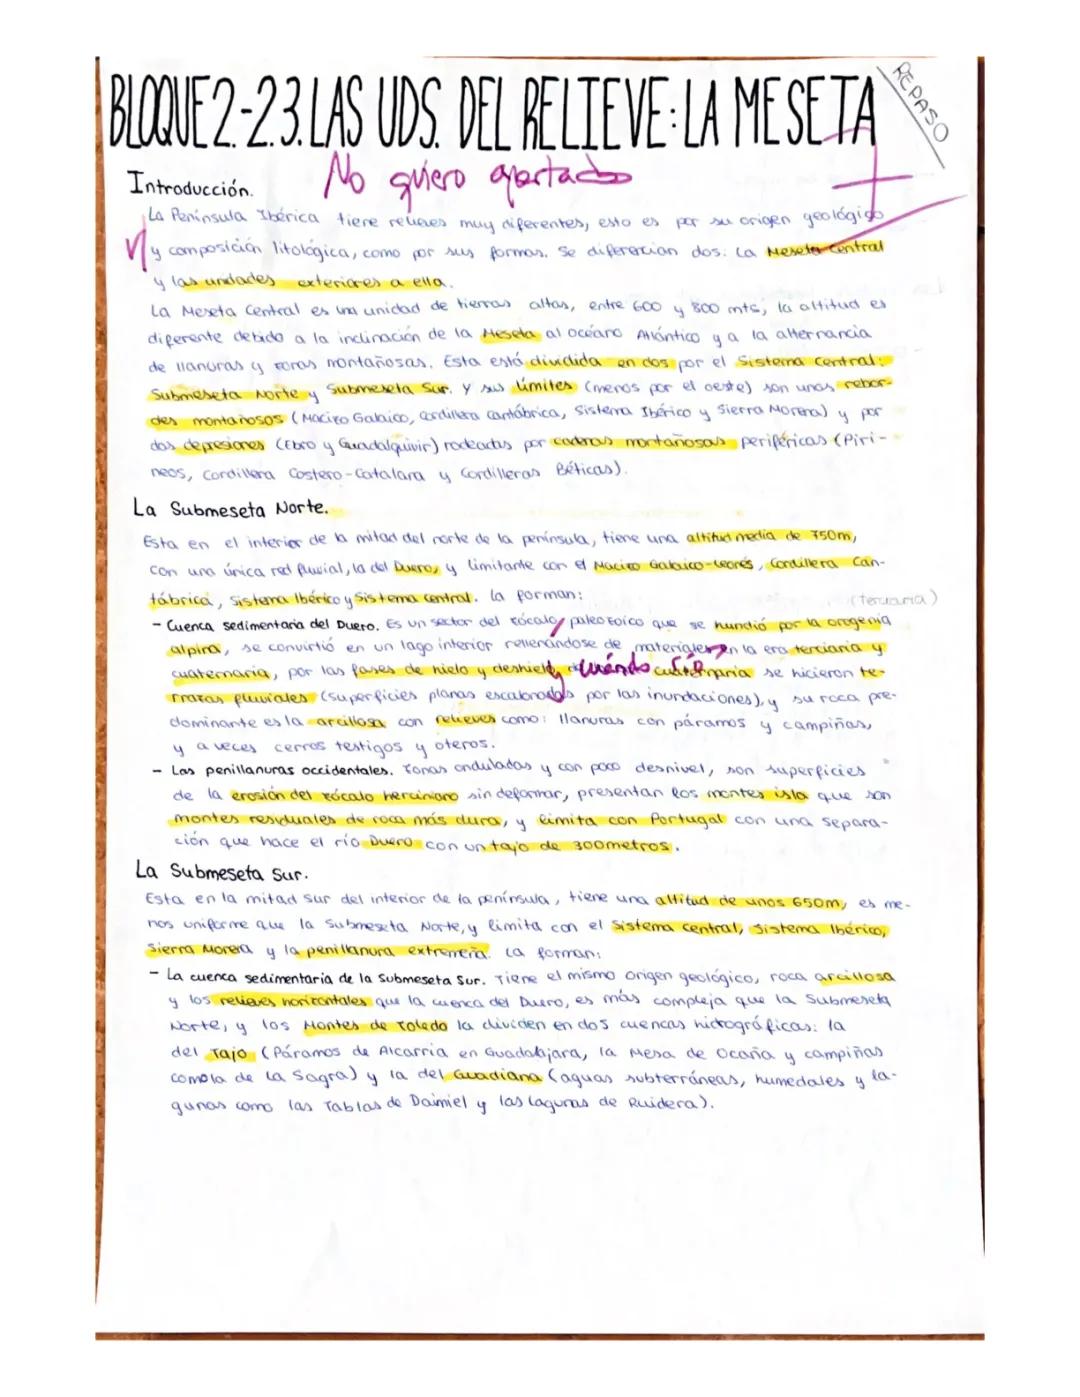 BLOQUE 2.-2.3. LAS UDS. DEL RELIEVE: LA MESETA
REPASO
No quiero apartados
Introducción.
La Península Ibérica tiene relieves muy diferentes, esto es por su origen geológico
y composición litológica, como por sus formas. Se diferencian dos: La Meseta Central
y las unidades exteriores a ella.
La Meseta Central es una unidad de tierras altas, entre 600 y 800 mts, la altitud es
diferente debido a la inclinación de la Meseta al océano Atlántico y a la alternancia
de llanuras y zonas montañosas. Esta está dividida en dos por el Sistema Central:
Submeseta Norte y Submeseta Sur. Y sus límites (menos por el oeste) son unos rebor-
des montañosos (Macizo Galaico, Cordillera Cantábrica, Sistema Ibérico y Sierra Morena) y por
dos depresiones (Ebro y Guadalquivir) rodeadas por cadenas montañosas periféricas (Piri-
neos, Cordillera Costero-Catalana y Cordilleras Béticas).
La Submeseta Norte.
Esta en el interior de la mitad del norte de la península, tiene una altitud media de 750m,
con una única red fluvial, la del Duero, y limitante con el Macizo Galaico-Leonés, Cordillera Can-
tábrica, Sistema Ibérico y Sistema Central. La forman:
(Terciaria)
- Cuenca sedimentaria del Duero. Es un sector del zócalo paleozoico que se hundió por la orogenia
alpina, se convirtió en un lago interior rellenándose de materiales en la era terciaria y
cuaternaria, por las fases de hielo y deshielo cuándo cuaternaria se hicieron te-
rrazas fluviales (superficies planas escalonadas por las inundaciones), y su roca pre-
dominante es la arcillosa con relieves como: llanuras con páramos y campiñas,
y a veces cerros testigos y oteros.
- Las penillanuras occidentales. Zonas onduladas y con poco desnivel, son superficies
de la erosión del zócalo herciniano sin deformar, presentan los montes isla que son
montes residuales de roca más dura, y limita con Portugal con una separa-
ción que hace el río Duero con un tajo de 300metros.
La Submeseta Sur.
Esta en la mitad sur del interior de la península, tiene una altitud de unos 650m, es me-
nos uniforme que la Submeseta Norte, y limita con el Sistema Central, Sistema Ibérico,
Sierra Morena y la penillanura extremeña. La forman:
- La cuenca sedimentaria de la Submeseta Sur. Tiene el mismo origen geológico, roca arcillosa
y los relieves horizontales que la cuenca del Duero, es más compleja que la Submeseta
Norte, y los Montes de Toledo la dividen en dos cuencas hidrográficas: la
del Tajo (Páramos de Alcarria en Guadalajara, la Mesa de Ocaña y campiñas
como la de La Sagra) y la del Guadiana (aguas subterráneas, humedales y la-
gunas como las Tablas de Daimiel y las lagunas de Ruidera).